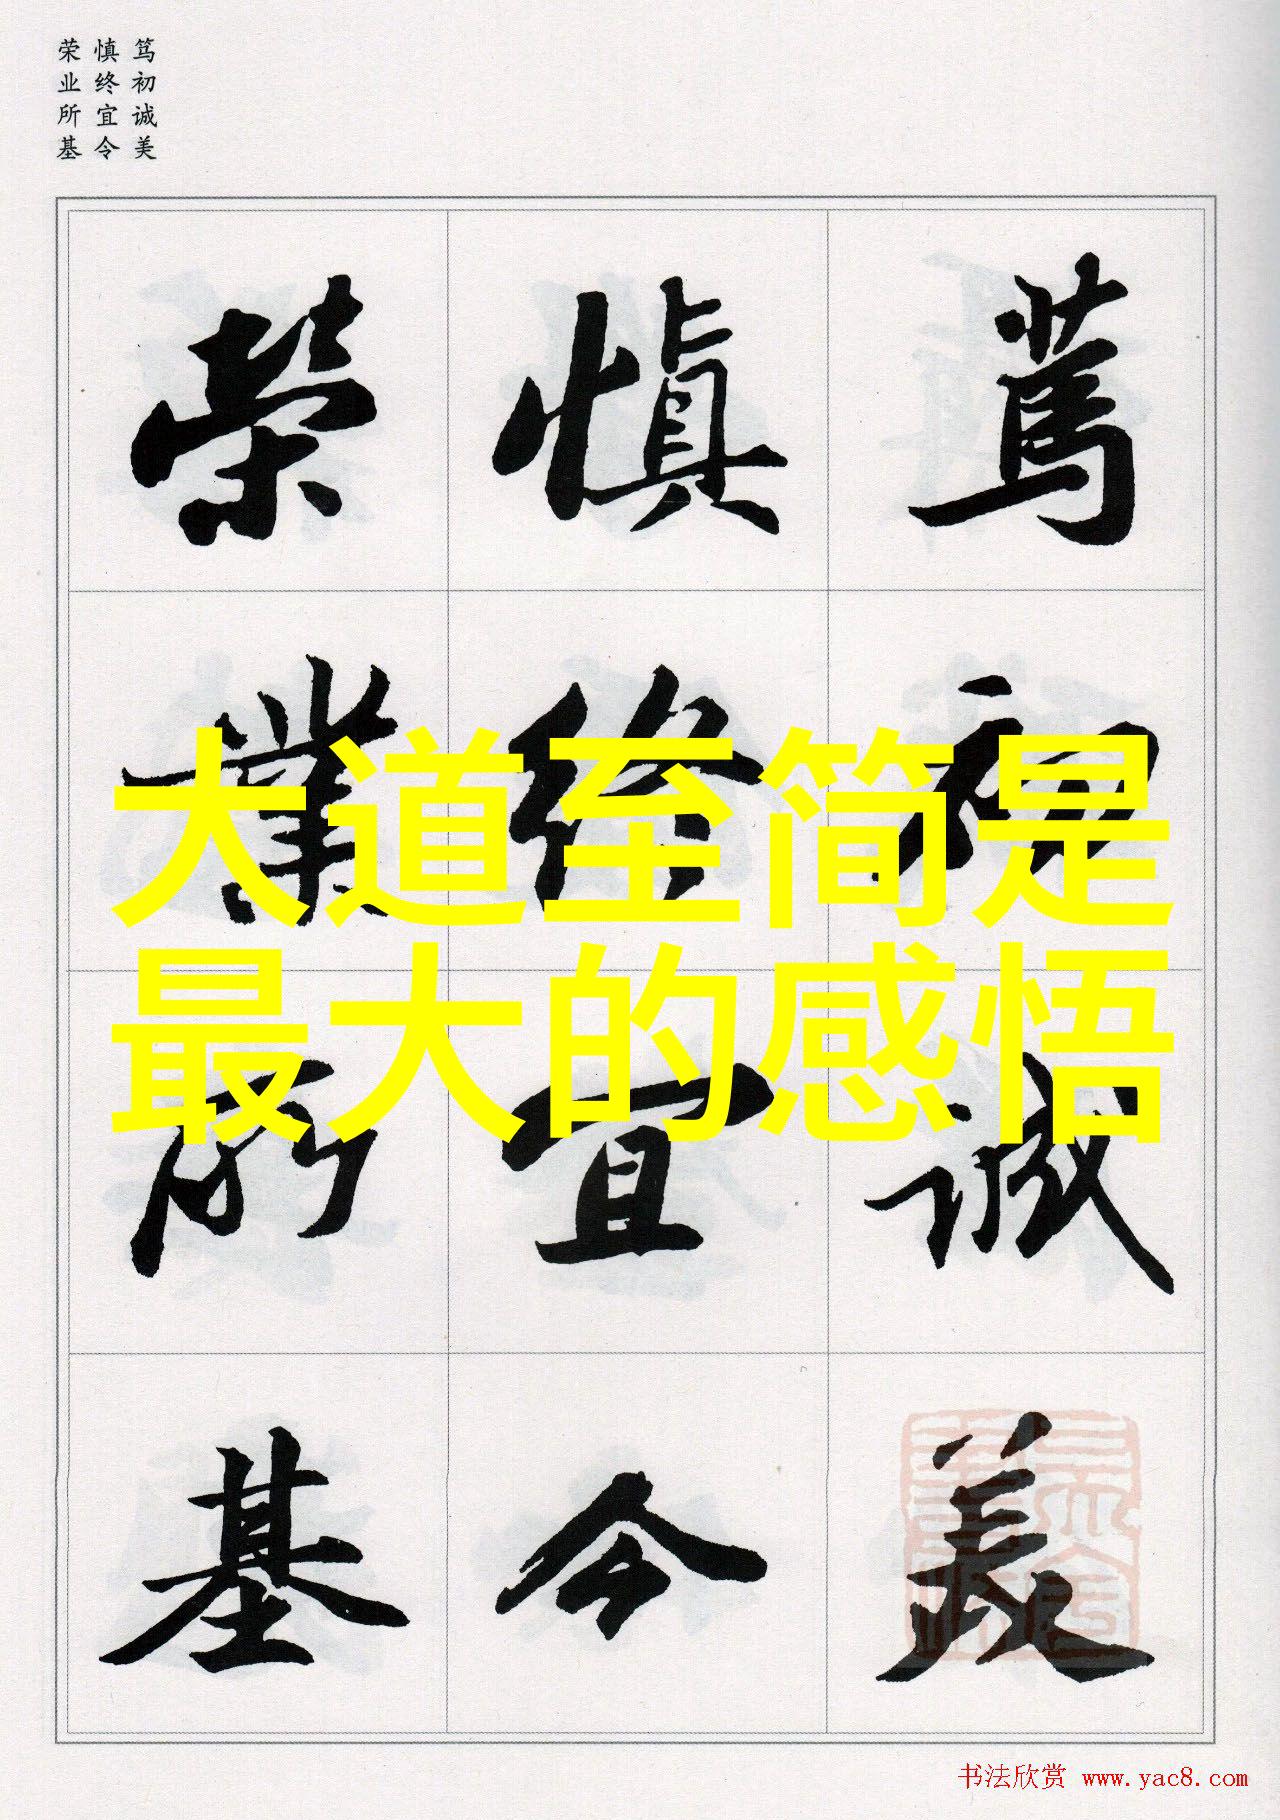 笃初诚美
慎终宜令
荣业所基
篤初誠美
慎終宜令
榮業所基
大道至简是
最大的感悟
书法欣赏 www.yac8.com